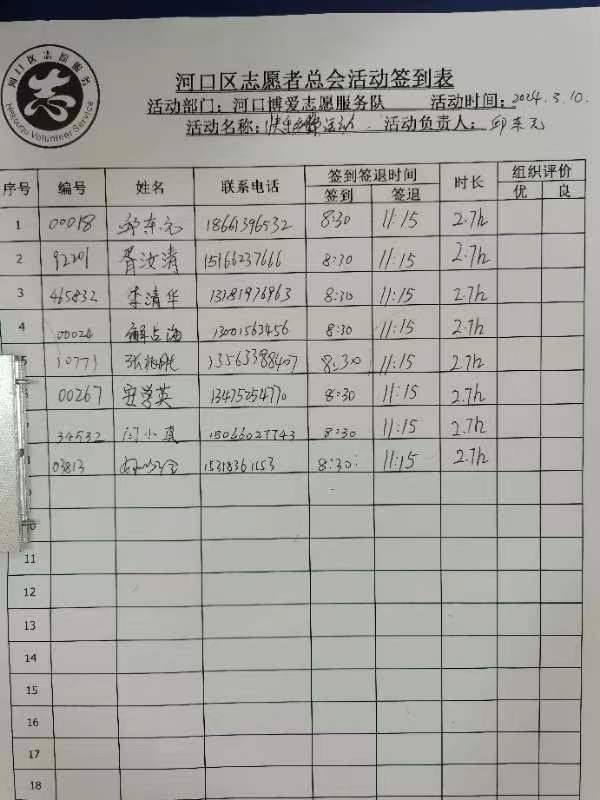 河口区志愿服务
Hekouqu Volunteer Service
河口区志愿者总会活动签到表
活动部门：河口博爱志愿服务队 活动时间：2024.3.10.
活动名称：快乐 运动. 活动负责人：邱东元
序号 编号 姓名 联系电话 签到签退时间 时长 组织评价
签到 签退 优 良
1 00018 邱东元 18661396532 8:30 11:15 2.7h
2 92201 胥汝清 15166237666 8:30 11:15 2.7h
3 465832 李清华 13181976963 8:30 11:15 2.7h
4 00024 解占海 13001563456 8:30 11:15 2.7h
5 10771 张 13563388407 8:30 11:15 2.7h
00267 安学英 13475254770 8:30 11:15 2.7h
34532 闫小真 15066027743 8:30 11:15 2.7h
03813 15318361153 8:30 11:15 2.7h
9
11
12
13
14
15
16
17
18